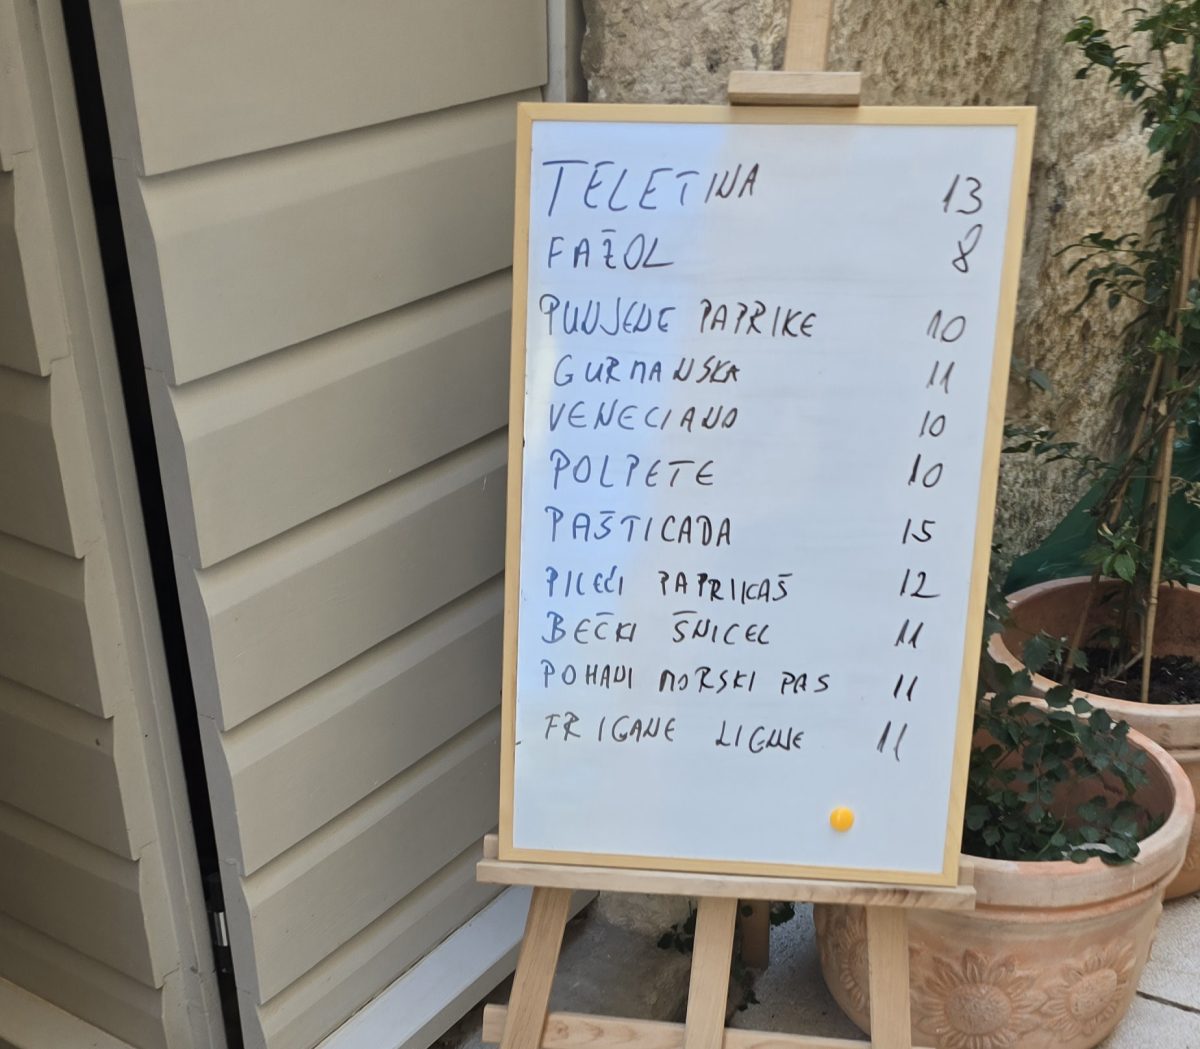 TELETINA 13
FAŽOL 8
PUNJENE PAPRIKE 10
GURMANSKA 11
VENECIANO 10
POLPETE 10
PAŠTICADA 15
PILEĆI PAPRIKAŠ 12
BEČKI ŠNICEL 11
POHANI MORSKI PAS 11
FRIGANE LIGNJE 11